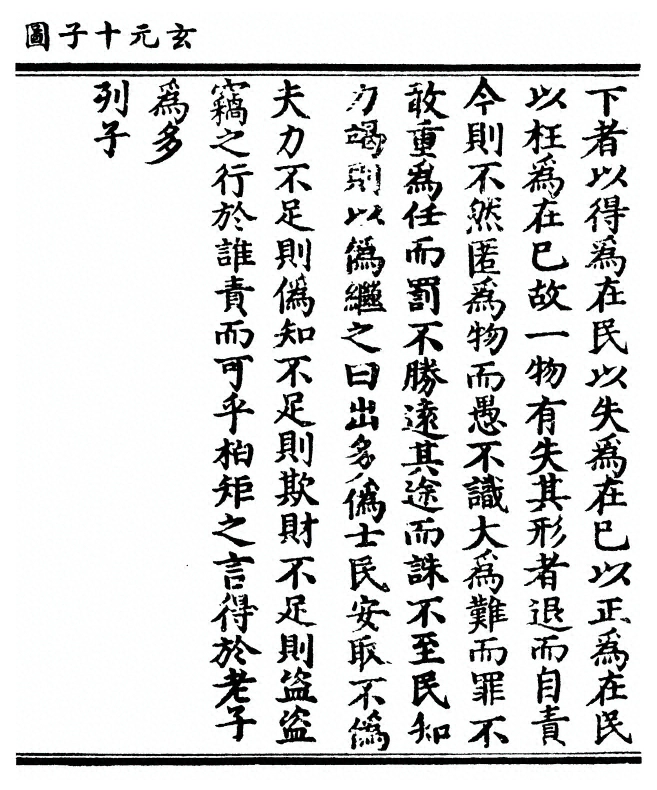 玄元十子圖
下者以得為在民以失為在巳以正為在民
以枉為在巳故一物有失其形者退而自責
今則不然匿為物而愚不識大為難而罪不
敢重為任而罰不勝遠其途而誅不至民知
力竭則以偽繼之日出多偽士民安取不偽
夫力不足則偽知不足則欺財不足則盜盜
竊之行於誰責而可乎柏矩之言得於老子
為多
列子